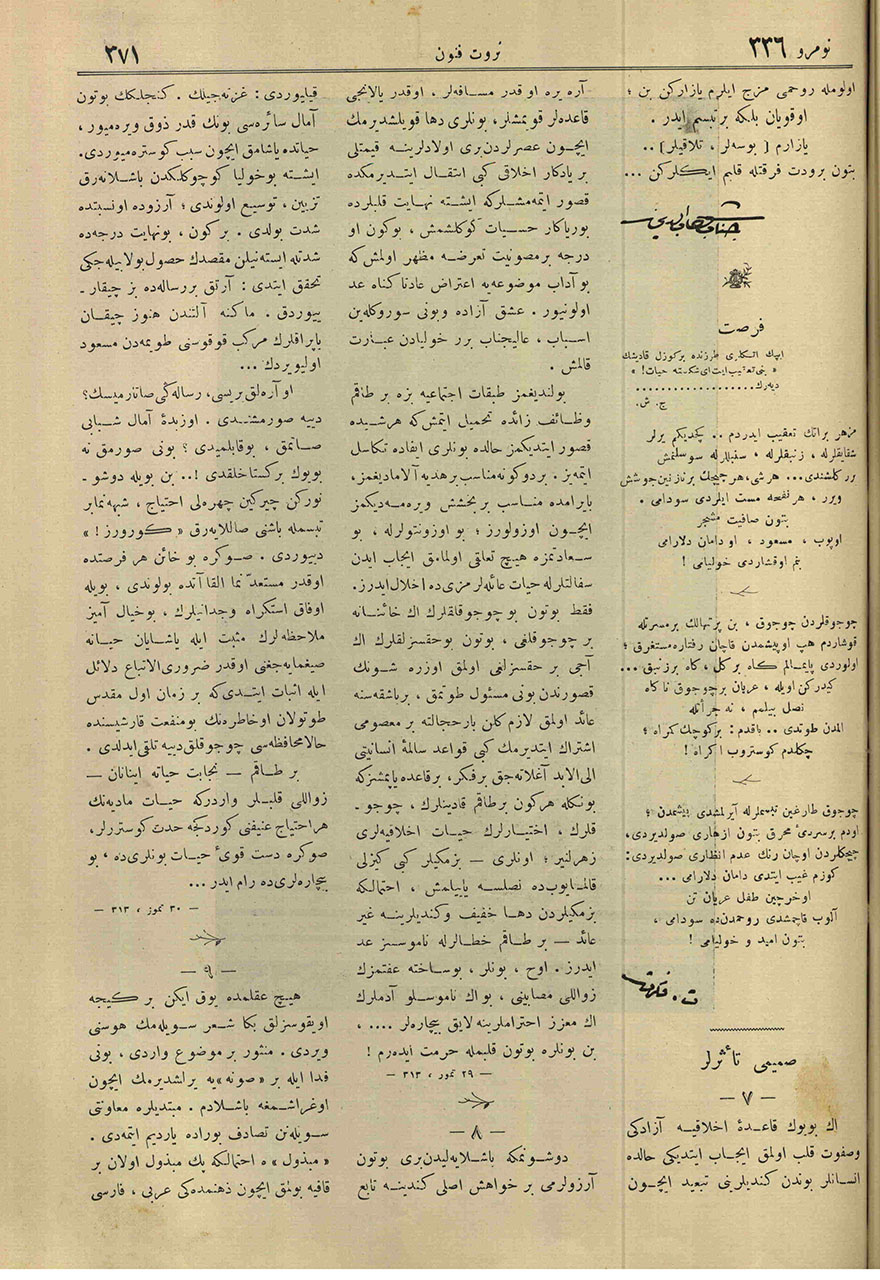 نومرو ٣٣٦
ثروت فنون
٣٧١
اولومله روحمی مزج ایلرم یازارکن بن ؛
اوقویان بلکه بر تبسم ایدر .
یازارم [ بوسه‌لر ، تلاقیلر ] ..
بتون برودت فرقتله قلبم ایکلرکن ...
جناب شهاب‌الدین
فرصت
ایپك اتکلری طرزنده بر کوزل قادینك
« بنی تعقیب ایت ای شکسته حیات ! »
دیه‌رك ....................
ج . ش .
مزهر براتك تعقیب ایدردم .. پکدیکم یرلر
شقایقلرله ، زنبقلرله ، سنبللرله سوسلنمش
برر کلشندی ... هر شی ، هر چیچك بر نازنین جوشش
ویرر ، هر نفحه مست ایلردی سودامی .
بتون صافیت مشجر
اوپوب ، مسعود ، او دامان دلارامی
بنم اوقشاردی خولیامی !
چوجوقلردن چوجوق ، بن پرتهالك بر مسرتله
قوشاردم هپ او پیشمدن قاچان رفتاره مستغرق ؛
اولوردی پایمالم کاه بر کل ، کاه بر زنبق ...
کیدرکن اویله ، عریان بر چوجوق ناکاه
نصل بیلمم ، نه جرأتله
المدن طوتدی .. باقدم : بر کوچك کمراه ؛
چکلدم کوستروب اکراه !
چوجوق طارغین تبسملرله آیرلمشدی پیشمدن ؛
اودم بر سردیٔ محرق بتون ازهاری صولدیردی ،
چیچکلردن اوچان رنك عدم انظاری صولدیردی :
کوزم غیب ایتدی دامان دلارامی ...
او خرچین طفل عریان تن
آلوب قاچمشدی روحمدن‌ده سودامی ،
بتون امید و خولیامی !
ت . فکرت
صمیمی تأثرلر
— ٧ —
اك بویوك قاعدهٔ اخلاقیه آزادکی
وصفوت قلب اولمق ایجاب ایتدیکی حالده
انسانلر بوندن کندیلرینی تبعید ایچـون
آره یره او قدر مسافه‌لر ، اوقدر یالانجی
قاعده‌لر قویمشلر ، بونلری دها قویلشدیرمك
ایچـون عصرلردن‌بری اولادلرینـه قیمتلی
بر یادکار اخلاقی کبی انتقال ایتدیرمکده
قصور ایتمه‌مشلرکه ایشته نهایت قلبلرده
بو ریاکار حسیات کوکلشمش ، بوکون او
درجه بر مصونیت تعرضه مظهر اولمش‌که
بو آداب موضوعه‌یه اعتراض عادتا کناه عد
اولونیور . عشق آزاده و بونی سوروکله‌ین
اسباب ، عالیجناب برر خولیادن عبارت
قالمش .
بولندیغمز طبقات اجتماعیه بزه بر طاقم
وظائف زائده تحمیل ایتمش‌که هرشیده
قصور ایتدیکمز حالده بونلری ایفاده تکاسل
ایتمه‌یز . بر دوکونه مناسب بر هدیه آلامادیغمز ،
بایرامده منـاسب بر بخشش ویره‌مـه‌دیکمز
ایچـون اوزولورز ؛ بو اوزونتولرله ، بو
سعادتمزه هیچ تعلقی اولمامق ایجاب ایدن
سفالتلرله حیات عائله‌لرمزی‌ده اخلال ایدرز .
فقط بوتون بو چوجوقلقلرك اك خائنـانه
بر چوجوقلغی ، بوتون بو حقسزلقلرك اك
آجی بر حقسزلغی اولمق اوزره شونـك
قصورندن بونی مسئول طوتمق ، بر باشقه‌سنه
عائد اولمق لازم کلن بار حجالته بر معصومی
اشتراك ایتدیرمك کبی قواعد سالمهٔ انسانیتی
الی الابد آغلاته‌جق بر فکر ، بر قاعده یاپمشزکه
بونکله هرکون بر طاقم قادینلرك ، چوجو-
قلرك ، اختیارلرك حیـات اخلاقیه‌لری
زهرلنیر ؛ اونلری — بزمکیلر کبی کیزلی
قالمایوب‌ده نصلسـه یایلمش ، احتمالکه
بزمکیلردن دهـا خفیف وکندیلرینـه غیر
عائد — بر طـاقم خطالرله ناموسسز عد
ایدرز . اوح ، بونلر ، بو ساخته عفتمزك
زواللی مصابینی ، بو اك ناموسـلو آدملرك
اك معزز احتراملرینه لایق بیچاره‌لر .... ،
بن بونلره بوتون قلبمله حرمت ایده‌رم !
— ٢٩ تموز ، ٣١٣ —
— ٨ —
دوشـونمکه باشـلایه‌لیدن‌بری بوتون
آرزولرمی بر خواهش اصلی کندینـه تابع
قیلیوردی : غزته‌جیلك . کنجلکك بوتون
آمال سائره‌سی بونك قدر ذوق ویره‌میور ،
حیاتده یاشامق ایچون سبب کوستره‌میوردی .
ایشته بو خولیا کوچوکلکدن باشلانه‌رق
تزیین ، توسیع اولوندی ؛ آرزوده او نسبتده
شدت بولدی . بر کون ، بو نهایت درجه‌ده
شدتله ایسته‌نیلن مقصدك حصول بولابیله‌جکی
تحقق ایتدی : آرتق بر رساله‌ده بز چیقار-
ییوردق . ماکنه آلتندن هنوز چیقـان
یاپراقلرك مرکب قوقوسنی طویمه‌دن مسعود
اولیویردك ...
او آره‌لق بریسی ، رساله‌کی صاتارمیسك ؟
دییه صورمشـدی . اوزبدهٔ آمال شـبابی
صـاتمق ، بو قابلمیدی ؟ بونی صورمق نه
بویوك بر کستاخلقدی !.. بن بویله دوشو-
نورکن چیرکین چهره‌لی احتیاج ، شبهه‌نمابر
تبسمله باشنی صاللایه‌رق « کـورورز ! »
دییوردی . صـوکره بو خائن هر فرصتده
اوقدر مستعد نما القا آتده بولوندی ، بویله
اوفاق استکراه وجدانیلرك ، بو خیال آمیز
ملاحظه‌لرك مثبت ایله یاشـایان حیـاته
صیغمایه‌جغنی اوقدر ضروری‌الاتباع دلائل
ایله اثبات ایتـدی‌که بر زمان اول مقدس
طوتولان او خاطره‌نك بو منفعت قارشیسنده
حالا محافظه‌سی چوجوقلق دییه تلقی ایدلدی .
بر طـاقم — نجابت حیاته اینانان —
زواللی قلبـلر واردرکه حیـات مادیه‌نك
هر احتیاج عنیفنی کوردکجه حدت کوسترر لر ،
صوکره دست قویٔ حیـات بونلری‌ده ، بو
بیچاره‌لری‌ده رام ایدر ...
— ٣٠ تموز ، ٣١٣ —
— ٩ —
هیـچ عقلمده یوق ایکن بر کیجه
اویقوسزلق بکا شـعر سویله‌مك هوسنی
ویردی . منثور بر موضوع واردی ، بونی
فدا ایله بر « صونه » یه یراشدیرمك ایچون
اوغراشـمغه باشـلادم . مبتدیلره معاونتی
سویله‌نن تصادف بوراده یاردیم ایتمه‌دی .
« مبذول » ه احتمالکه پك مبذول اولان بر
قافیه بولمق ایچون ذهنمده‌کی عربی ، فارسی